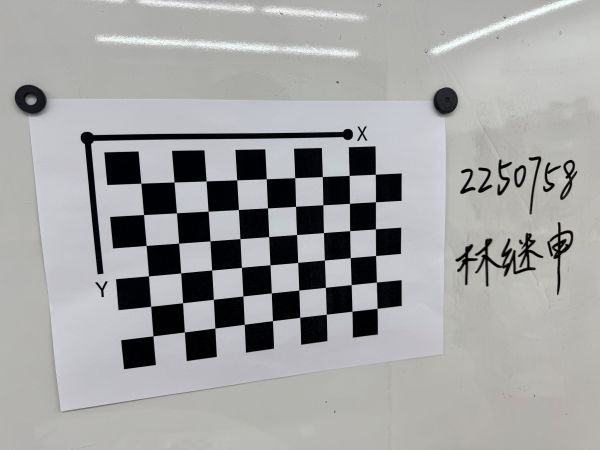 X
2250758
林继申
Y